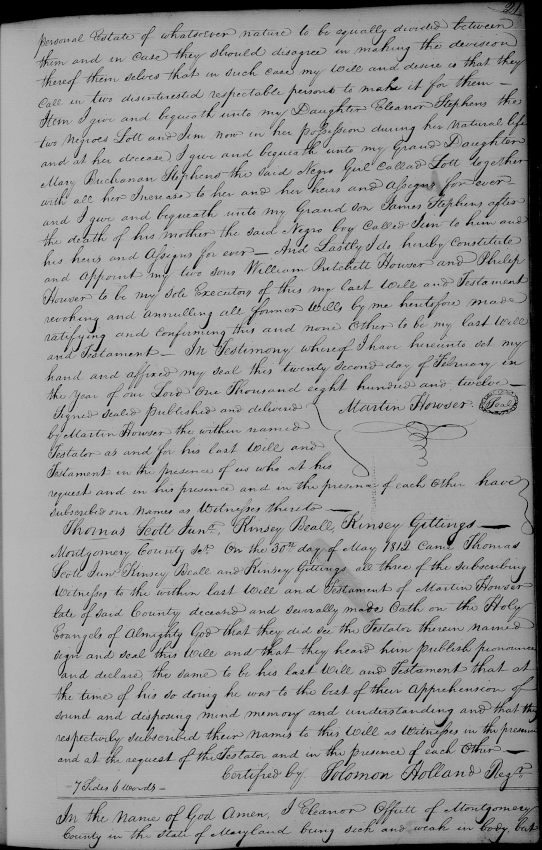 21
personal Estate of whatsoever nature to be equally divided between
them and in case they should disagree in making the devision
thereof them selves that in such case my will and desire is that they
call in two disinterested respectable persons to make it for them —
Item I give and bequeath unto my Daughter Eleanor Stephens the
two Negroes Lott and Jim now in her possession during her natural life
and at her decease I give and bequeath unto my Grand Daughter
Mary Buchanan Stephens the said Negro Girl Callad Lott together
with all her Increase to her and her heirs and assigns for ever —
and I give and bequeath unto my Grand son James Stephens after
the death of his mother the said Negro boy Called Jim to him and
his heirs and assigns for ever — And Lastly I do hereby Constitute
and appoint my two sons William Pritchett Howser and Philip
Howser to be my sole Executors of this my last Will and Testament
revoking and annulling all former Wills by me heretofore made
ratifying and confirming this and none other to be my last Will
and Testament — In Testimony whereof I have hereunto set my
hand and affixed my seal this twenty second day of February in
the Year of our Lord One Thousand eight hundred and twelve —
Signed sealed published and delivered
Martin Howser. Seal
by Martin Howser the within named
Testator as and for his last Will and
Testament in the presence of us who at his
request and in his presence and in the presence of each other have
subscribed our names as Witnesses thereto —
Thomas Scott Junr, Kinsey Beall, Kinsey Gittings —
Montgomery County Sct. On the 30th day of May 1812 Came Thomas
Scott Junr Kinsey Beall and Kinsey Gittings all three of the subscribing
Witnesses to the within last Will and Testament of Martin Howser
late of said County deceasd and severally made Oath on the Holy
Evangels of Almighty God that they did see the Testator therein named
sign and seal this Will and that they heard him publish pronounce
and declare the same to be his last Will and Testament that at
the time of his so doing he was to the best of their apprehension of
sound and disposing mind memory and understanding and that they
respectively subscribed their names to this Will as Witnesses in the presence
and at the request of the Testator and in the presence of each other —
Certified by Solomon Holland Regr.
7 Sides 6 words —
In the name of God Amen, I Eleanor Offutt of Montgomery
County in the State of Maryland being sick and weak in body, but